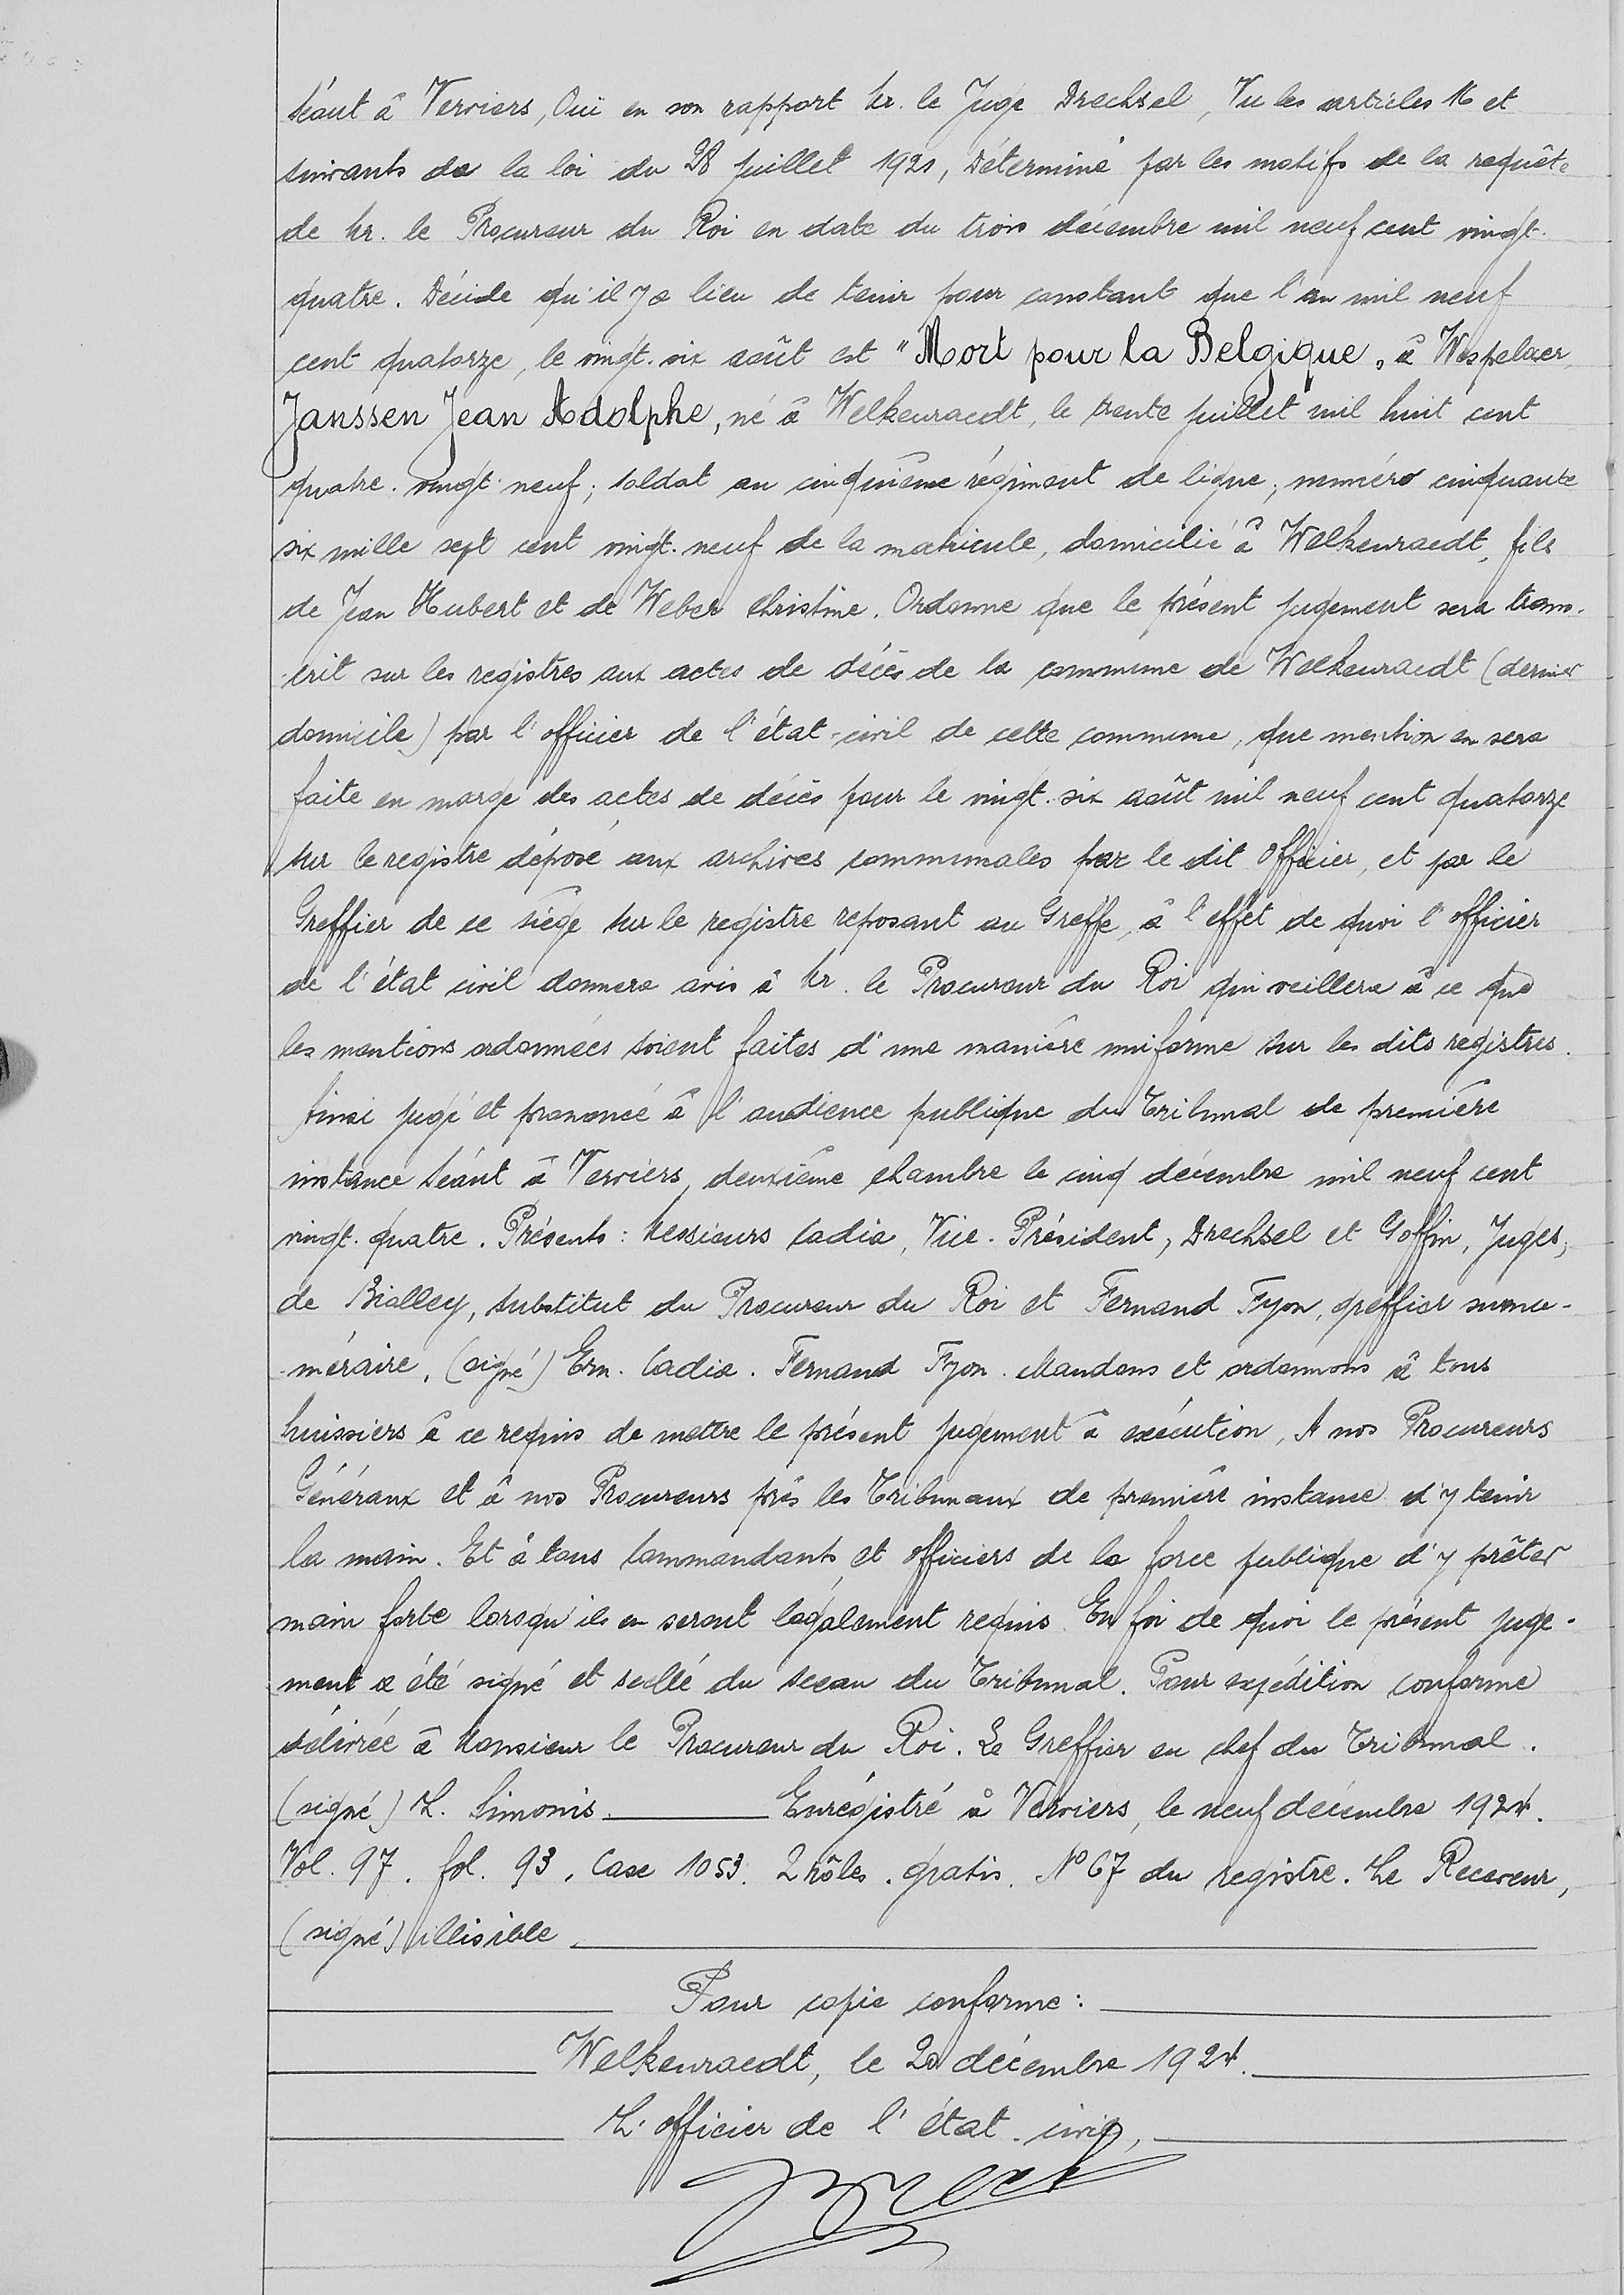 séant à Verviers, Ouï en son rapport Mr. le Juge Drechsel, Vu les articles 16 et
suivants de la loi du 28 juillet 1921, Déterminé par les motifs de la requête
de Mr. le Procureur du Roi en date du trois décembre mil neuf cent vingt-
quatre. Décide qu'il y a lieu de tenir pour constant que l'an mil neuf
cent quatorze, le vingt-six août est "Mort pour la Belgique" à Wespelaer,
Janssen Jean Adolphe, né à Welkenraedt, le trente juillet mil huit cent
quatre-vingt-neuf; soldat au cinquième régiment de ligne; numéro cinquante
six mille sept cent vingt-neuf de la matricule, domicilié à Welkenraedt, fils
de Jean Hubert et de Weber Christine. Ordonne que le présent jugement sera trans-
-crit sur les registres aux actes de décès de la commune de Welkenraedt (dernier
domicile) par l'officier de l'état-civil de cette commune, que mention en sera
faite en marge des actes de décès pour le vingt-six août mil neuf cent quatorze
sur le registre déposé aux archives communales par le dit Officier, et par le
Greffier de ce siège sur le registre reposant au Greffe, à l'effet de quoi l'officier
de l'état civil donnera avis à Mr. le Procureur du Roi qui veillera à ce que
les mentions ordonnées soient faites d'une manière uniforme sur les dits registres.
Ainsi jugé et prononcé à l'audience publique du Tribunal de première
instance séant à Verviers, deuxième chambre le cinq décembre mil neuf cent
vingt-quatre. Présents: Messieurs Cadia, Vice-Président, Drechsel et Goffin, Juges;
de Biolley, substitut du Procureur du Roi et Fernand Fyon, greffier surnu-
-méraire, (signé) Ern. Cadia. Fernand Fyon. Mandons et ordonnons à tous
huissiers à ce requis de mettre le présent jugement à exécution, A nos Procureurs
Généraux et à nos Procureurs près les Tribunaux de première instance d'y tenir
la main. Et à tous Commandants et officiers de la force publique d'y prêter
main forte lorsqu'ils en seront légalement requis. En foi de quoi le présent juge-
ment a été signé et scellé du sceau du Tribunal. Pour expédition conforme
délivrée à Monsieur le Procureur du Roi. Le Greffier en chef du Tribunal.
(signé) L. Simonis. Enrégistré à Verviers, le neuf décembre 1924.
Vol. 97. fol. 93, Case 1053. 2 rôles. gratis. N° 67 du registre. Le Receveur,
(signé) illisible
Pour copie conforme:
Welkenraedt, le 20 décembre 1924.
L'officier de l'état-civil,